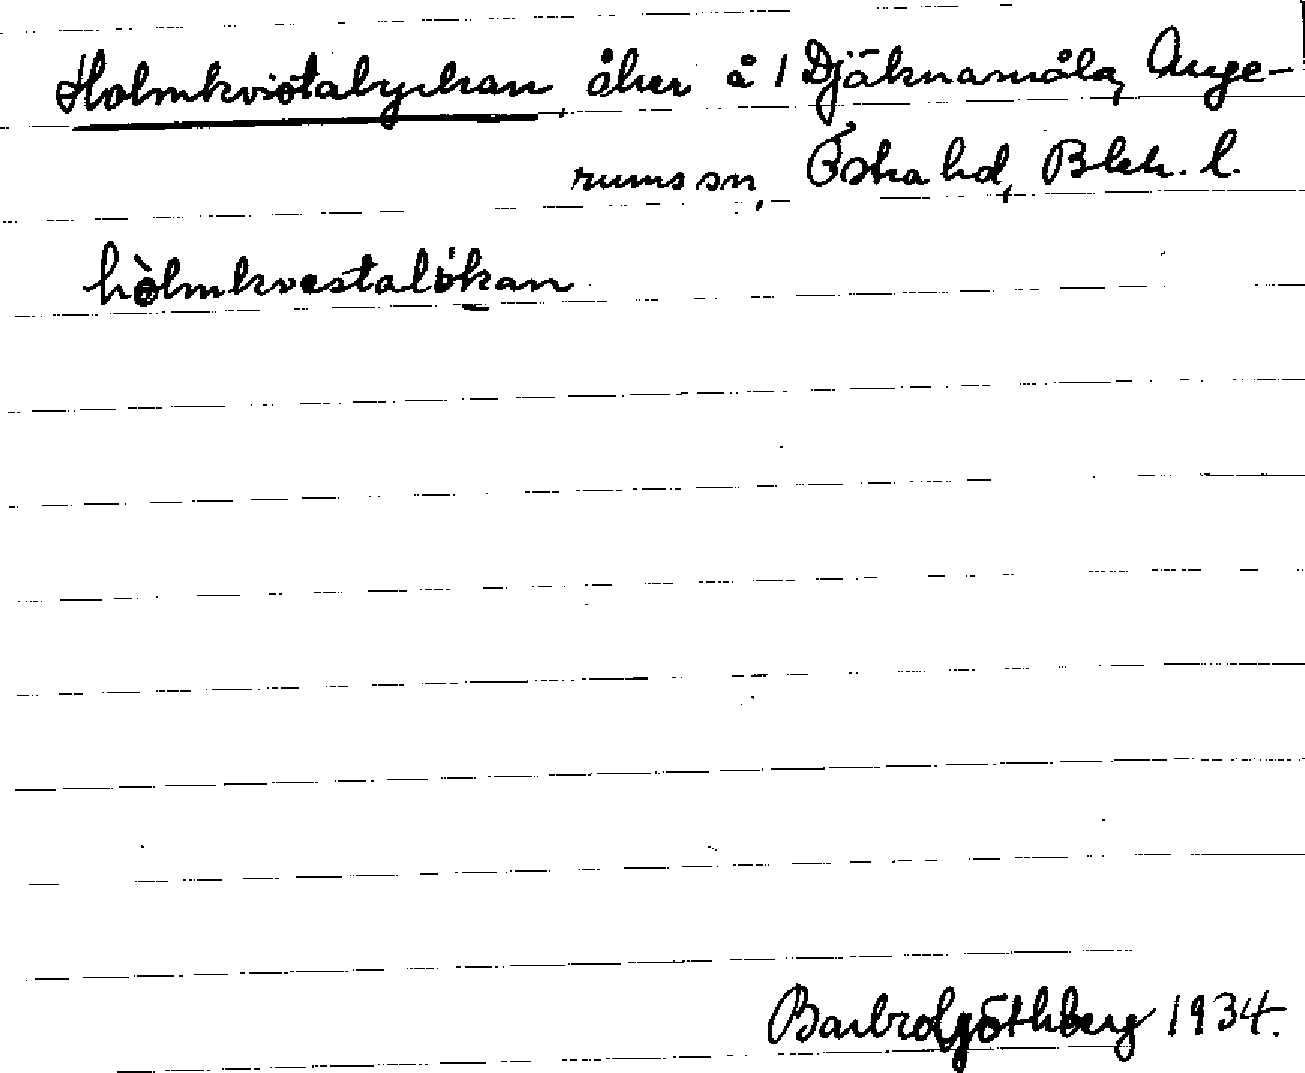 Holmkvistalyckan, åker å 1 Djäknamåla, Auge-
rums sn, Östra hd, Blek. l.
hòlmkvestalökan
Barbro Göthberg 1934.